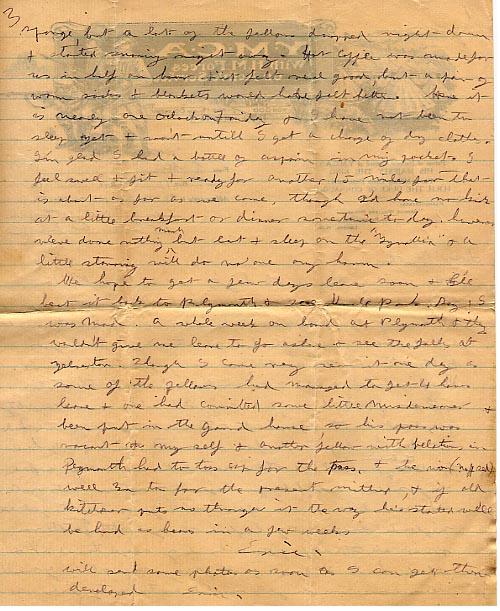 3
sponge but a lot of the fellows dropped right down
& started snoring right away. Hot coffee was made for
us in half an hour & it felt real good, but a pair of
warm socks & blankets would have felt better. Now it
is nearly one oclock on Friday & have not been to
sleep yet & wont untill I get a change of dry clothes.
Im glad I had a bottle of aspirin in my pocket. I
feel swell & fit & ready for another 15 miles for that
is about as far as we come, though Id have no kick
at a little breakfast or dinner sometime to day. however
weve done nothing much but eat & sleep on the "Tyrolia" so a
little starving will do no one any harm
We hope to get a few days leave soon & Ill
beat it back to Plymouth & see
was mad. A whole week on board at Plymouth & they
wouldn't give me leave to go ashore & see the folks at
Yelverton. Though I came very near it one day as
some of the fellows had managed to get 4 hours
leave & one had committed some little misdemeanor &
been put in the guard house so his pass was
vacant & my self & another fellow with relatives in
Plymouth had to toss up for the pass. & he won
well Im for the present , & if old
Kitchener puts us through it the way hes started well
be hard as bears in a few weeks
Eric.
will send some photos as soon as I can get them
developed Eric.